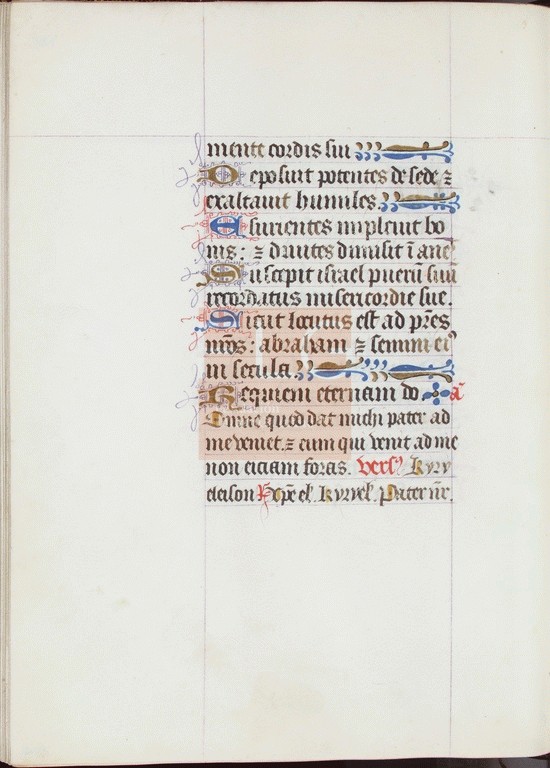 mente cordis sui
Deposuit potentes de sede ⁊
exaltauit humiles
Esurientes impleuit bo
nis : ⁊ diuites dimisit ī ane
Suscepit israel puerū suū
recordatus misericordie sue.
Sicut locutus est ad pr̄es
nr̄os : abraham ⁊ semini ei⁹
in secula
Requiem eternam do a͞
Omne quod dat michi pater ad
me veniet. ⁊ eum qui venit ad me
non eiciam foras. vers⁹ Kyry
eleison xp̄e el'. kyryel'. Pater nr̄.